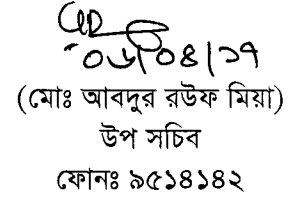 ০৬/০৪/১৭
(মোঃ আবদুর রউফ মিয়া)
উপ সচিব
ফোনঃ ৯৫১৪১৪২